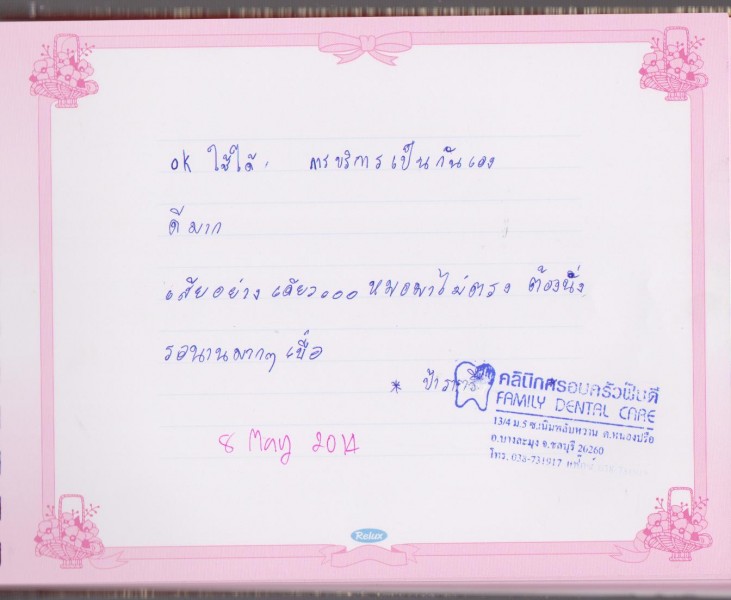 ok ใช้ได้. การบริการเป็นกันเอง
ดีมาก
เสียอย่างเดียว... หมอมาไม่ตรง ต้องนั่ง
รอนานมากๆ เบื่อ
* ป้า
คลินิกครอบครัวฟันดี
FAMILY DENTAL CARE
13/4 ม.5 ซ.เนินพลับหวาน ต.หนองปรือ
อ.บางละมุง จ.ชลบุรี 20260
โทร. 038-731917
8 May 2014
Relux